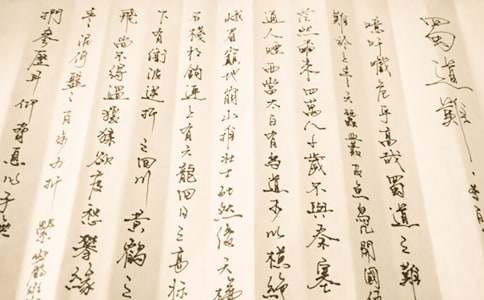 蜀道難
噫吁嚱危乎高哉蜀道之難
難於上青天蠶叢及魚鳧開國
茫然爾來四萬八千歲不與秦塞
通人煙西當太白有鳥道可以橫絕
峨眉巔地崩山摧壯士死然後天梯
石棧相鉤連上有六龍回日之高標
下有衝波逆折之回川黃鶴之
飛尚不得過猨猱欲度愁攀緣
青泥何盤盤百步九折縈巖巒
捫參歷井仰脅息以手